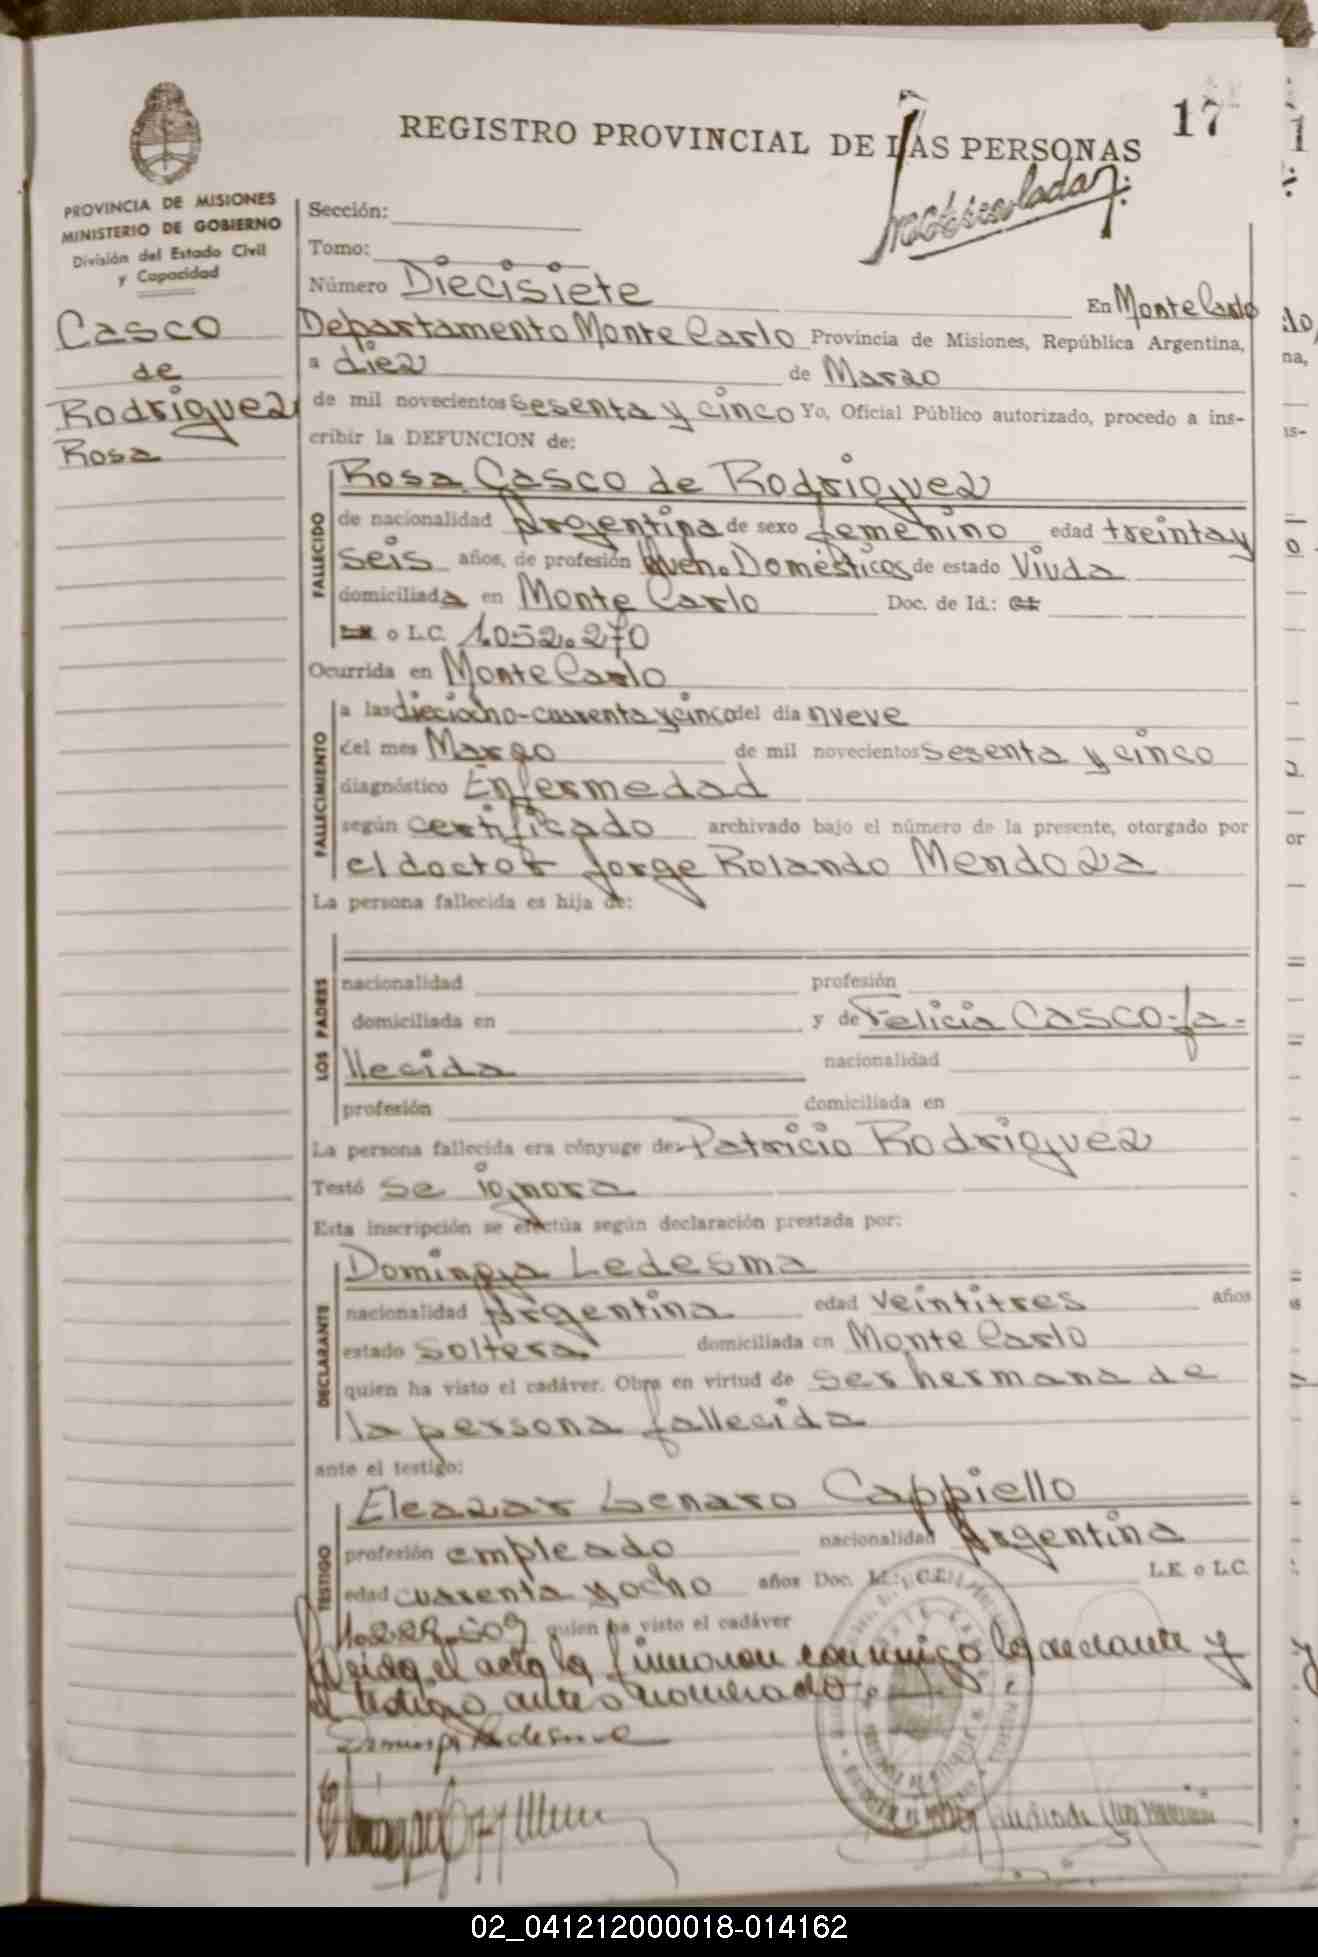 17
REGISTRO PROVINCIAL DE LAS PERSONAS
PROVINCIA DE MISIONES
MINISTERIO DE GOBIERNO
División del Estado Civil
y Capacidad
Casco
de
Rodriguez
Rosa
Sección:
Tomo:
Número Diecisiete
En Monte Carlo
Departamento Monte Carlo Provincia de Misiones, República Argentina,
a diez de Marzo
de mil novecientos sesenta y cinco Yo, Oficial Público autorizado, procedo a ins-
cribir la DEFUNCION de:
FALLECIDO
Rosa Casco de Rodriguez
de nacionalidad Argentina de sexo femenino edad treinta y
seis años, de profesión Queh. Domésticos de estado Viuda
domiciliada en Monte Carlo Doc. de Id.:
o L.C. 1.052.270
Ocurrida en Monte Carlo
FALLECIMIENTO
a las dieciocho-cuarenta y cinco del día nueve
del mes Marzo de mil novecientos sesenta y cinco
diagnóstico Enfermedad
según certificado archivado bajo el número de la presente, otorgado por
el doctor Jorge Rolando Mendoza
La persona fallecida es hija de:
LOS PADRES
nacionalidad profesión
domiciliada en y de Felicia CASCO-fa-
llecida nacionalidad
profesión domiciliada en
La persona fallecida era cónyuge de Patricio Rodriguez
Testó se ignora
Esta inscripción se efectúa según declaración prestada por:
DECLARANTE
Dominga Ledesma
nacionalidad Argentina edad veintitres años
estado soltera domiciliada en Monte Carlo
quien ha visto el cadáver. Obra en virtud de ser hermana de
la persona fallecida
ante el testigo:
TESTIGO
Eleazar Genaro Cappiello
profesión empleado nacionalidad Argentina
edad cuarenta y ocho años Doc. L.E. o L.C.
quien ha visto el cadáver
Leida el acta la firmaron conmigo la declarante y
el testigo antes nombrado
02_041212000018-014162